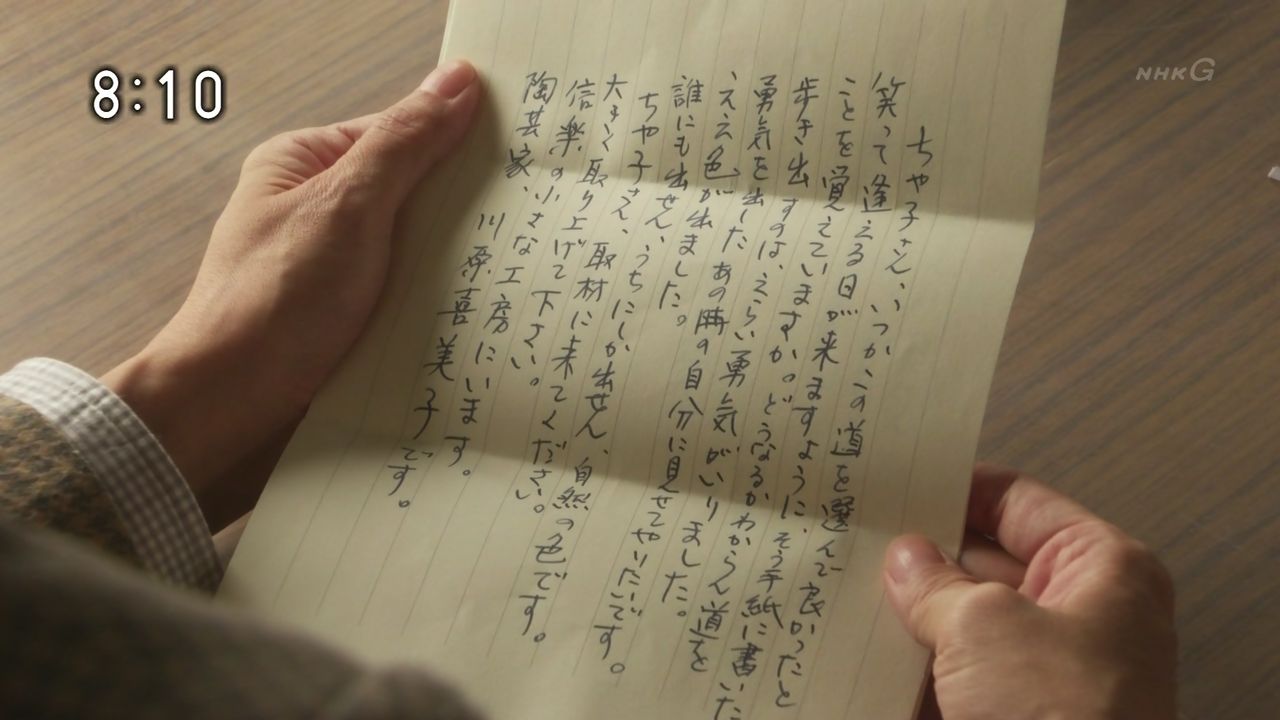 8:10
NHKG
ちや子さん、いつかこの道を選んで良かったと
笑って逢える日が来ますように、そう手紙に書いた
ことを覚えていますか。どうなるかわからん道を
歩き出すのは、えらい勇気がいりました。
勇気を出したあの時の自分に見せてやりたいです。
ええ色が出ました。
誰にも出せん、うちにしか出せん、自然の色です。
ちや子さん、取材に来てください。
大きく取り上げて下さい。
信楽の小さな工房にいます。
陶芸家、川原喜美子です。